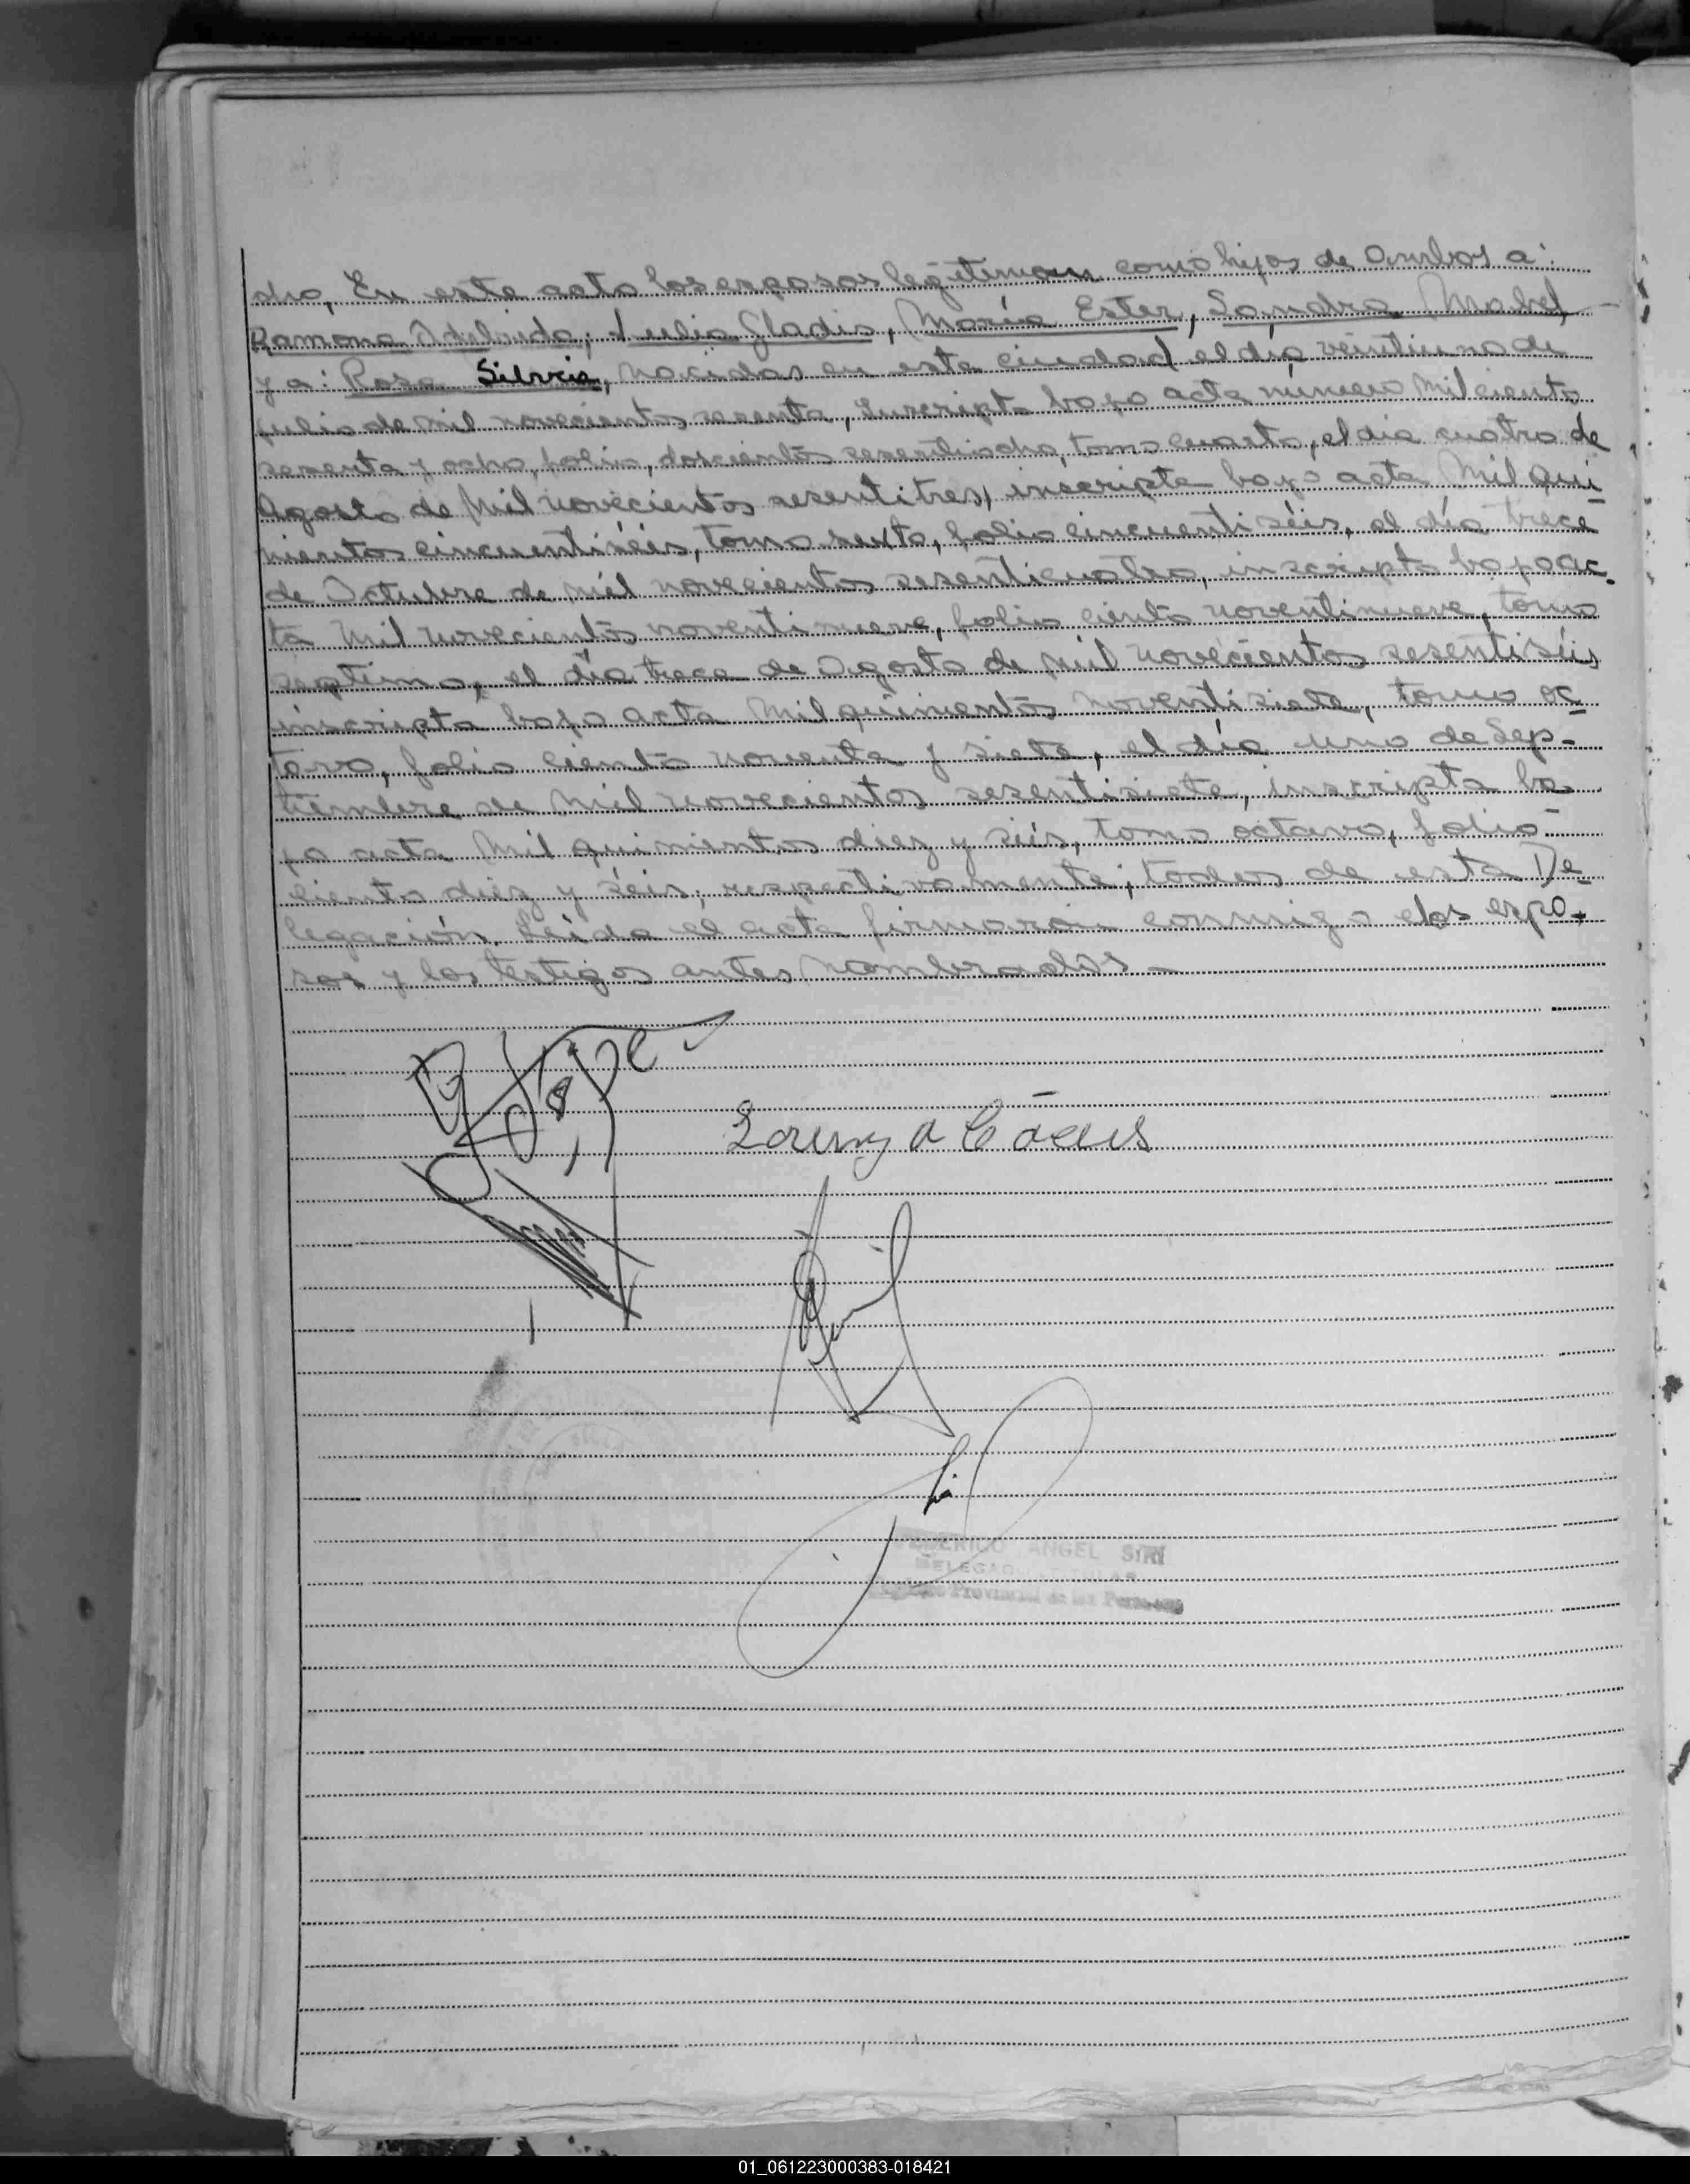 dro, En este acto los esposos legitiman como hijos de ambos a:
Ramona Adelaida, Julia Gladis, María Ester, Sandra Mabel
y a: Rosa Silvia, nacidas en esta ciudad el día veintiuno de
julio de mil novecientos sesenta, Inscripta bajo acta número mil ciento
sesenta y ocho, folio, doscientos sesentiocho, tomo cuarto, el día cuatro de
Agosto de mil novecientos sesentitres, inscripta bajo acta mil qui
nientos cincuentiséis, tomo sexto, folio cincuentiséis, el día trece
de Octubre de mil novecientos sesenticuatro, inscripta bajo ac-
ta mil novecientos noventinueve, folio ciento noventinueve, tomo
septimo, el día trece de Agosto de mil novecientos sesentiséis
inscripta bajo acta mil quinientos noventisiete, tomo oc-
tavo, folio ciento noventa y siete, el día uno de Sep-
tiembre de mil novecientos sesentisiete, inscripta ba-
jo acta mil quinientos diez y séis, tomo octavo, folio
ciento diez y séis, respectivamente; todas de esta De-
legación. Leída el acta firmaron conmigo los espo-
sos y los testigos antes nombrados -
ANGEL SIRI
Provincial de las Personas
01_061223000383-018421